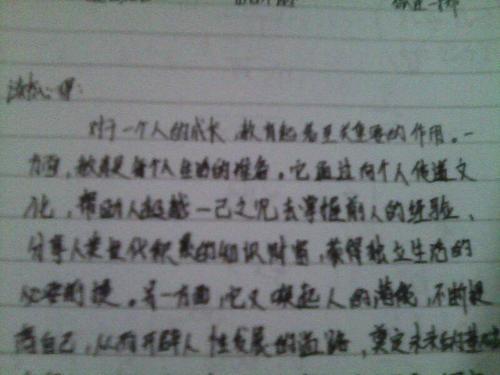 对于一个人的成长,教育起着至关重要的作用。一
方面,教育是每个人生活的准备。它通过向个人传递文
化,帮助人超越一己之见去掌握前人的经验,
分享人类世代积累的知识财富,获得独立生活的
必要前提。另一方面,它又唤起人的潜能,不断提
高自己,从而开辟人性发展的道路,奠定未来的基